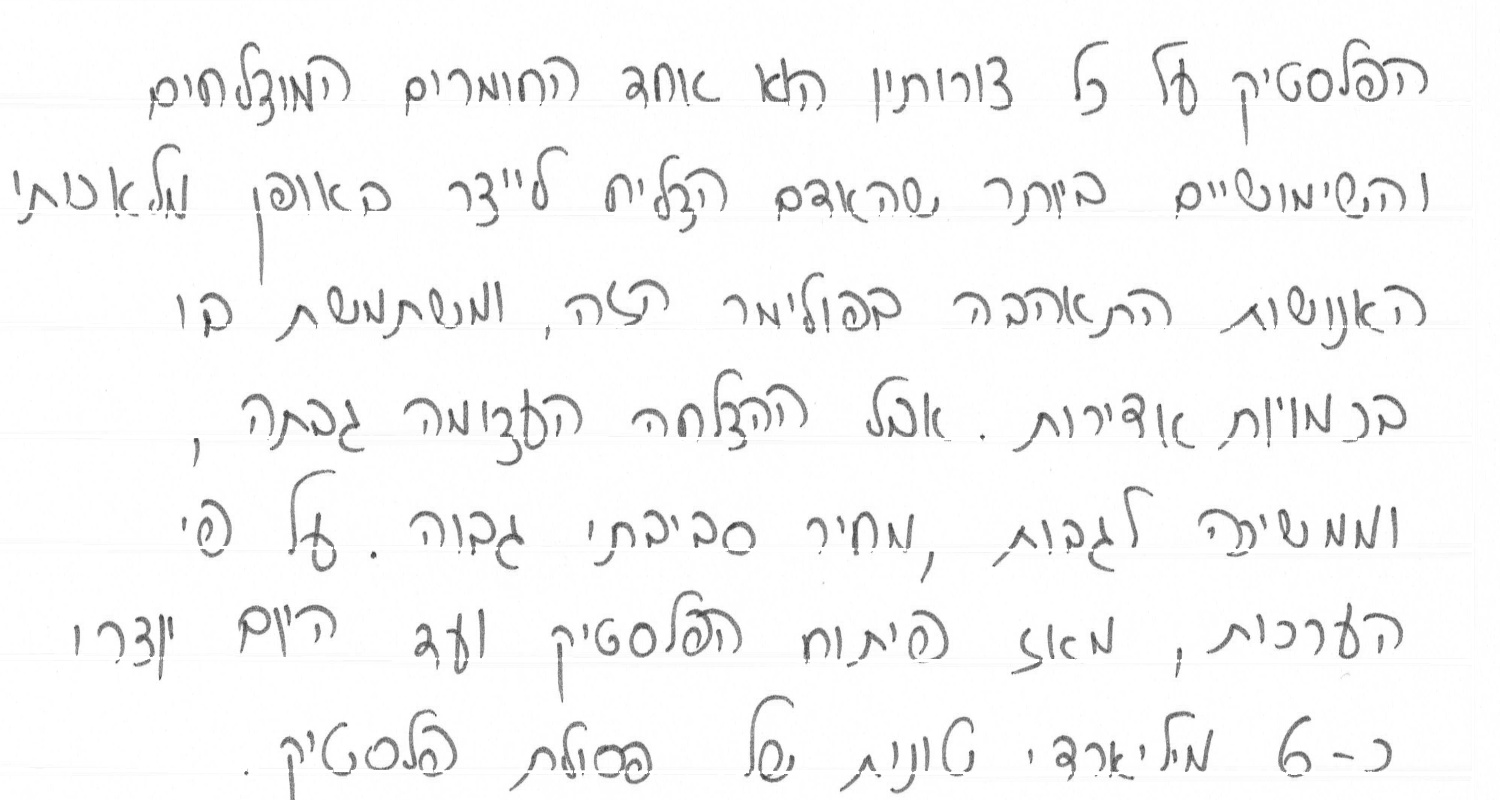 הפלסטיק על כל צורותיו הוא אחד החומרים המוצלחים
והשימושיים ביותר שהאדם הצליח לייצר באופן מלאכותי
האנושות התאהבה בפולימר הזה, ומשתמשת בו
בכמויות אדירות. אבל ההצלחה העצומה גבתה,
וממשיכה לגבות, מחיר סביבתי גבוה. על פי
הערכות, מאז פיתוח הפלסטיק ועד היום יוצרו
כ-6 מיליארדי טונות של פסולת פלסטיק.